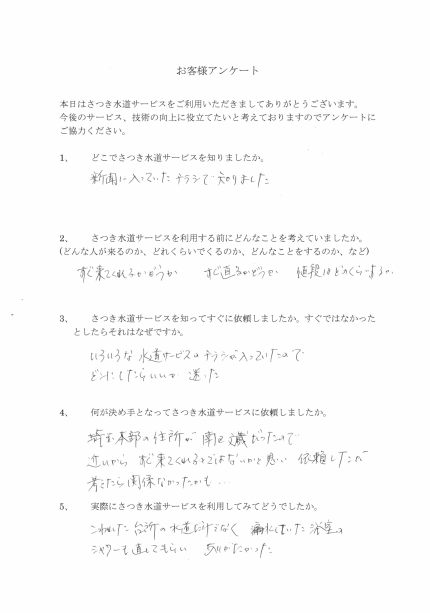 お客様アンケート
本日はさつき水道サービスをご利用いただきましてありがとうございます。
今後のサービス、技術の向上に役立てたいと考えておりますのでアンケートに
ご協力ください。
1、 どこでさつき水道サービスを知りましたか。
新聞に入っていたチラシで知りました
2、 さつき水道サービスを利用する前にどんなことを考えていましたか。
(どんな人が来るのか、どれくらいでくるのか、どんなことをするのか、など)
すぐ来てくれるかどうか すぐ直るかどうか 値段はどのくらいするか。
3、 さつき水道サービスを知ってすぐに依頼しましたか。すぐではなかった
としたらそれはなぜですか。
いろいろな水道サービスのチラシが入っていたので
どこにしたらいいか 迷った
4、 何が決め手となってさつき水道サービスに依頼しましたか。
埼玉本部の住所が 南区 だったので
近いから すぐ来てくれるのではないかと思い 依頼したが
考えたら関係なかったかも…
5、 実際にさつき水道サービスを利用してみてどうでしたか。
こわれた台所の水道だけでなく 漏水していた浴室の
シャワーも直してもらい ありがたかった